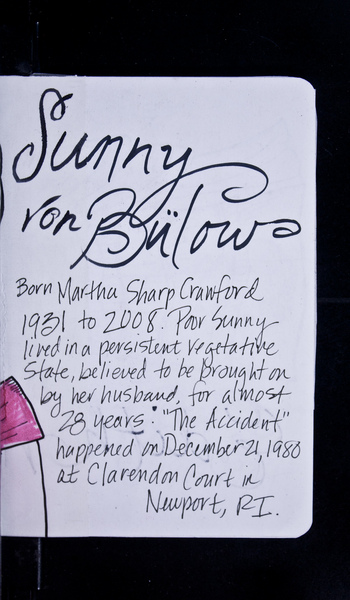 Sunny
von Bülow
Born Martha Sharp Crawford
1931 to 2008. Poor Sunny
lived in a persistent vegetative
state, believed to be brought on
by her husband, for almost
28 years. "The Accident"
happened on December 21, 1980
at Clarendon Court in
Newport, RI.